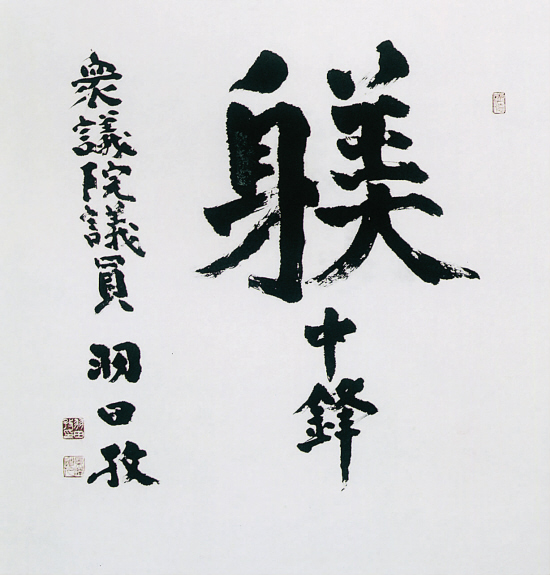 躾
中鋒
衆議院議員 羽田孜